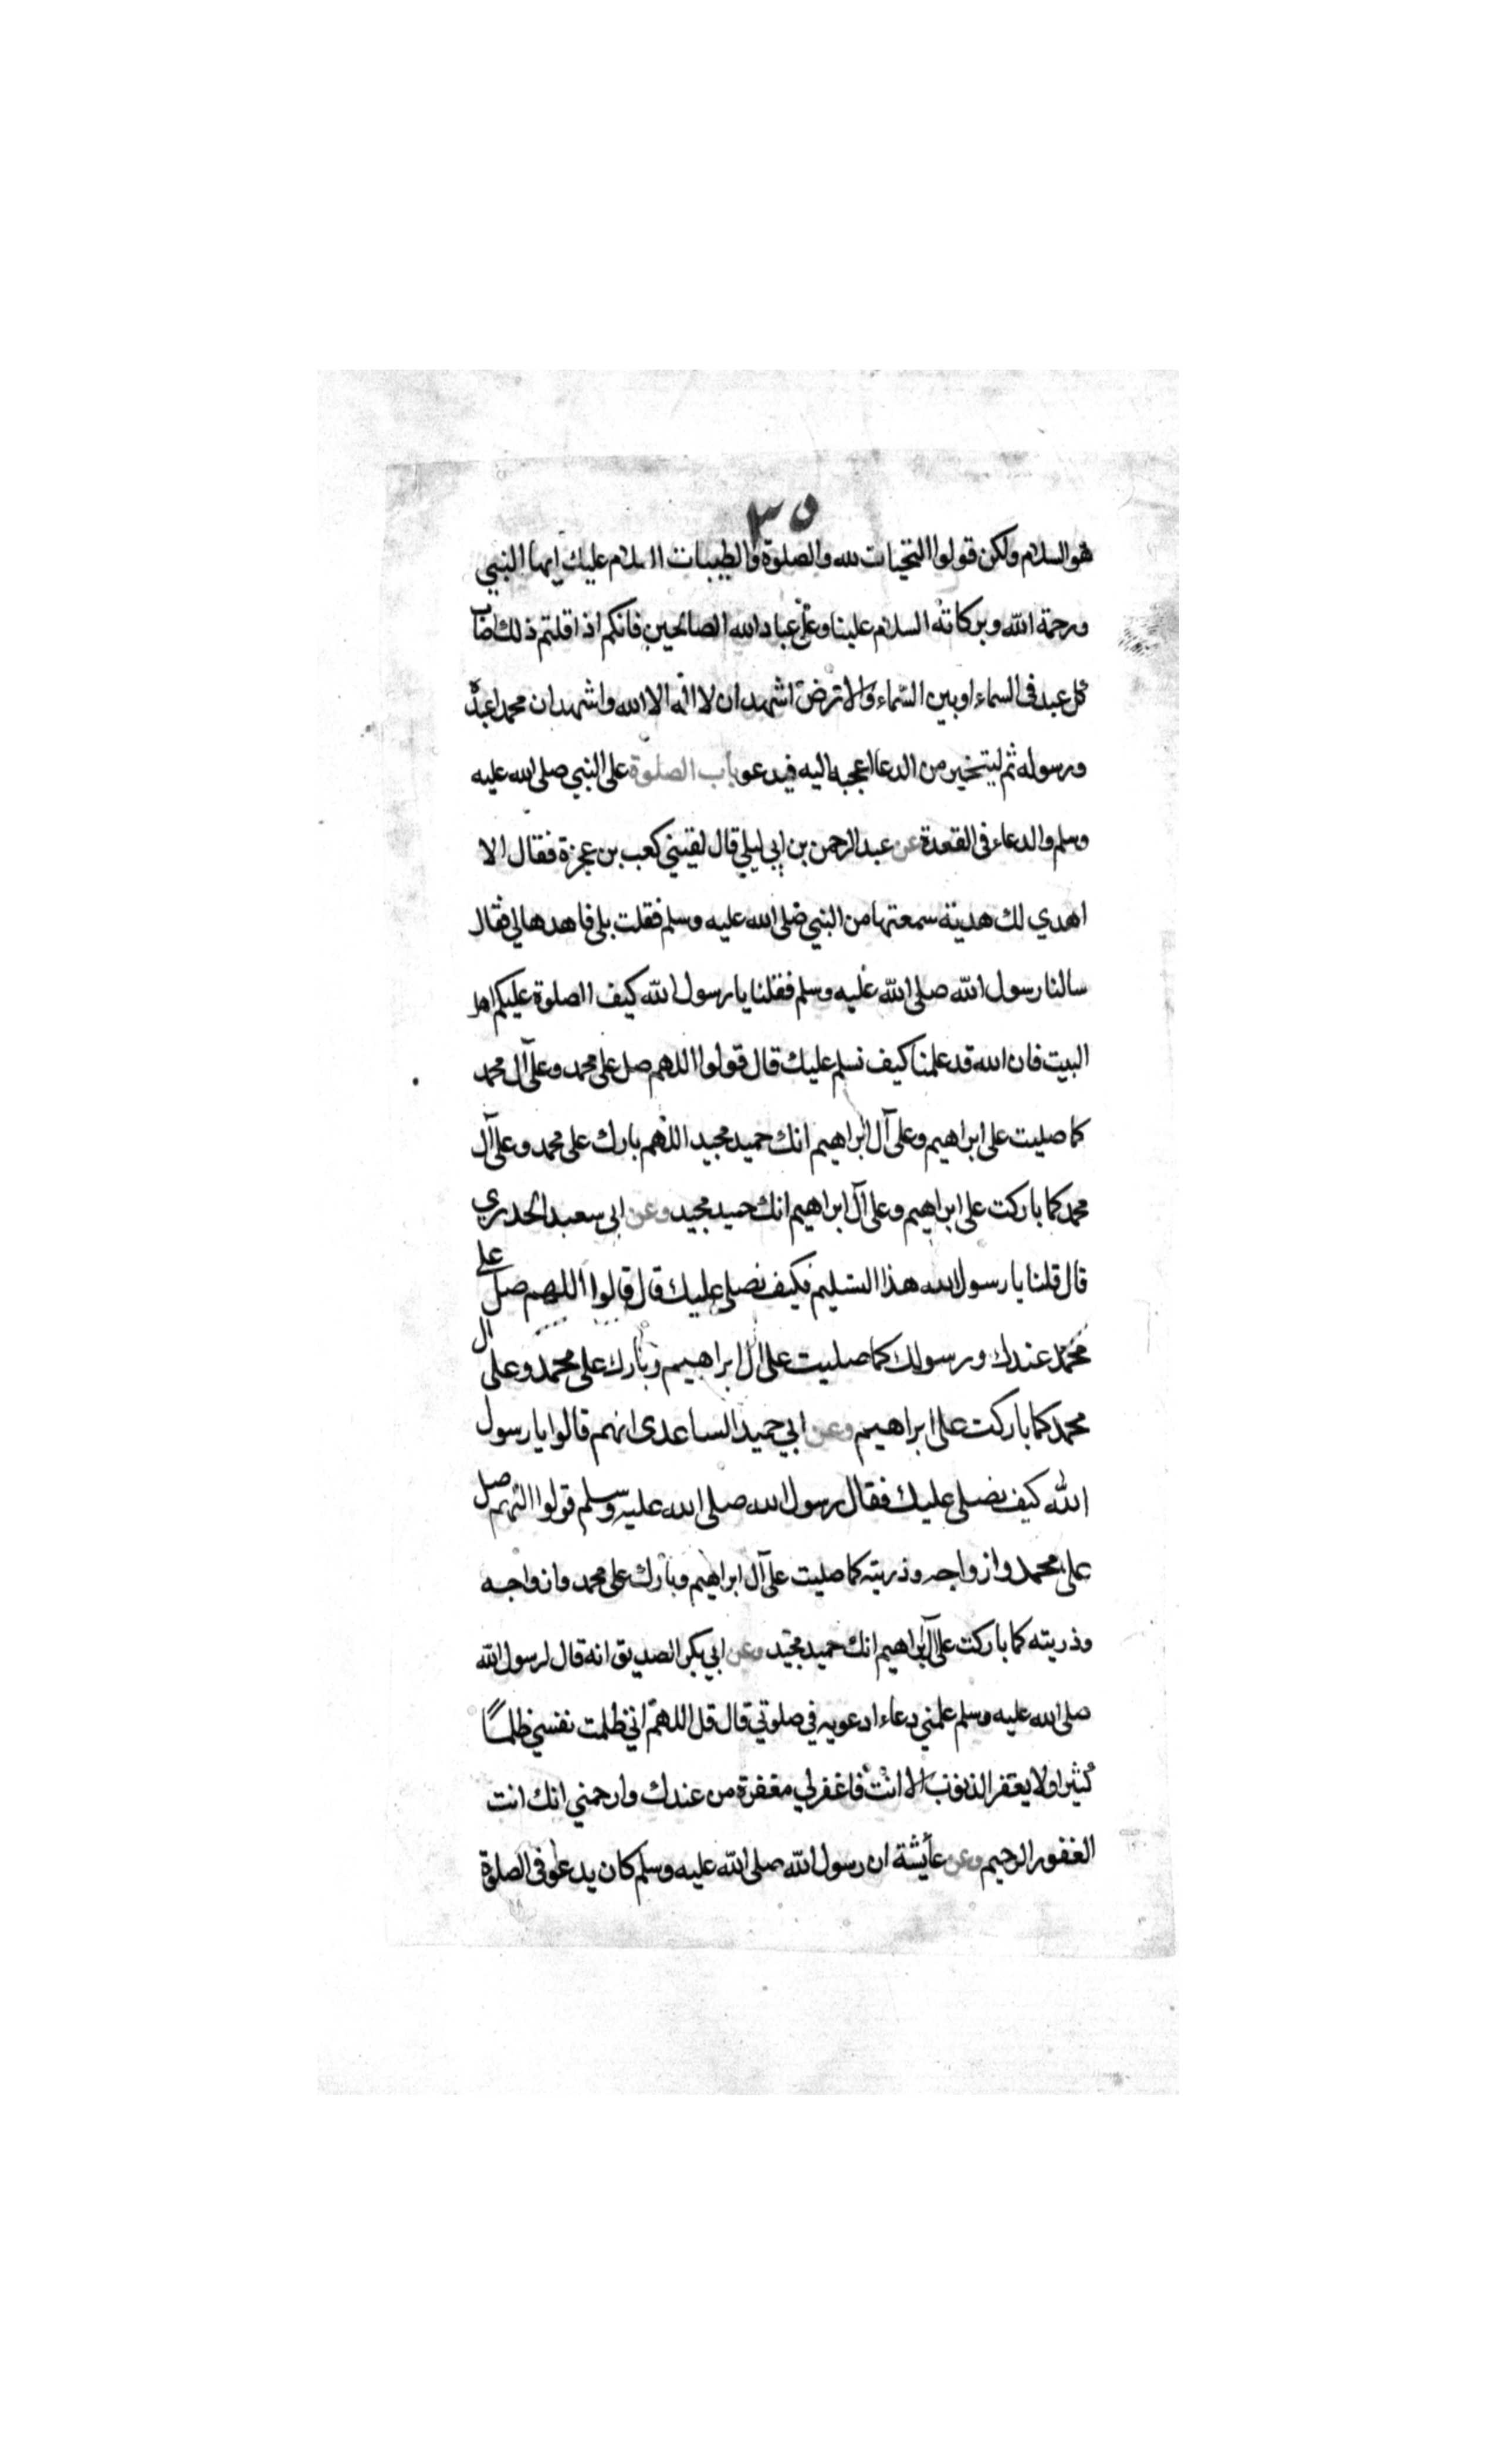 ٣٥
هو السلام ولكن قولوا التحيات لله والصلوة والطيبات السلام عليك ايها النبي
ورحمة الله وبركاته السلام علينا وعلى عباد الله الصالحين فانكم اذا قلتم ذلك اصاب
كل عبد فى السماء او بين السماء والارض اشهد ان لا اله الا الله واشهد ان محمدا عبده
ورسوله ثم ليتخير من الدعا اعجبه اليه فيدعو باب الصلوة على النبي صلى الله عليه
وسلم والدعاء فى القعدة عن عبد الرحمن بن ابي ليلي قال لقيني كعب بن عجزة فقال الا
اهدي لك هدية سمعتها من النبي صلى الله عليه وسلم فقلت بلى فاهدها لي فقال
سالنا رسول الله صلى الله عليه وسلم فقلنا يا رسول الله كيف الصلوة عليكم اهل
البيت فان الله قد علمنا كيف نسلم عليك قال قولوا اللهم صل على محمد وعلى آل محمد
كما صليت على ابراهيم وعلى آل ابراهيم انك حميد مجيد اللهم بارك على محمد وعلى آل
محمد كما باركت على ابراهيم وعلى آل ابراهيم انك حميد مجيد وعن ابى سعيد الخدري
قال قلنا يا رسول الله هذا التسليم فكيف نصلى عليك قال قالوا اللهم صل على
محمد عندك ورسولك كما صليت على ال ابراهيم وبارك على محمد وعلى ال
محمد كما باركت على ابراهيم وعن ابي حميد الساعدى انهم قالوا يا رسول
الله كيف نصلى عليك فقال رسول الله صلى الله عليه وسلم قولوا اللهم صل
على محمد وازواجه وذريته كما صليت على آل ابراهيم وبارك على محمد وازواجه
وذريته كما باركت على آل ابراهيم انك حميد مجيد وعن ابي بكر الصديق انه قال لرسول الله
صلى الله عليه وسلم علمني دعاء ادعو به في صلوتي قال قل اللهم اني ظلمت نفسي ظلماً
كثيرا ولا يغفر الذنوب الا انت فاغفر لي مغفرة من عندك وارحمني انك انت
الغفور الرحيم وعن عائشة ان رسول الله صلى الله عليه وسلم كان يدعو فى الصلوة